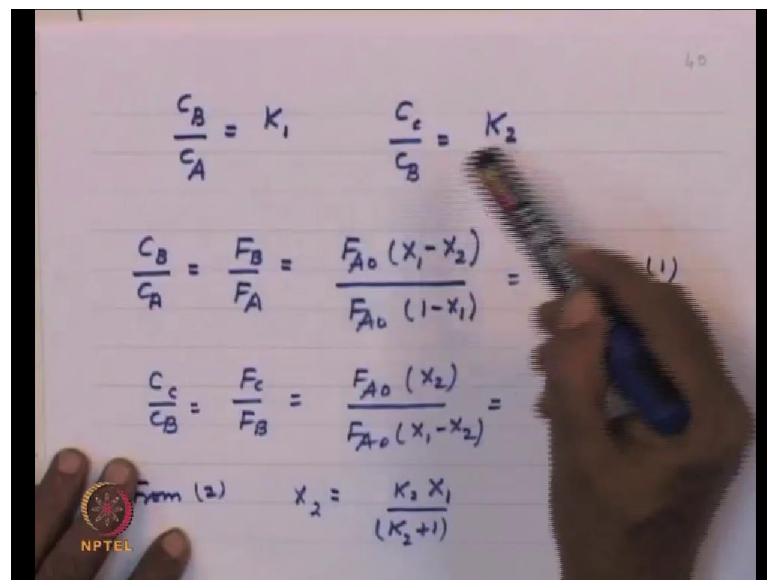 40
C_B/C_A = K_1    C_c/C_B = K_2
C_B/C_A = F_B/F_A = F_A0 (X_1 - X_2) / F_A0 (1 - X_1) = (1)
C_c/C_B = F_c/F_B = F_A0 (X_2) / F_A0 (X_1 - X_2) =
From (2)    X_2 = K_2 X_1 / (K_2 + 1)
NPTEL